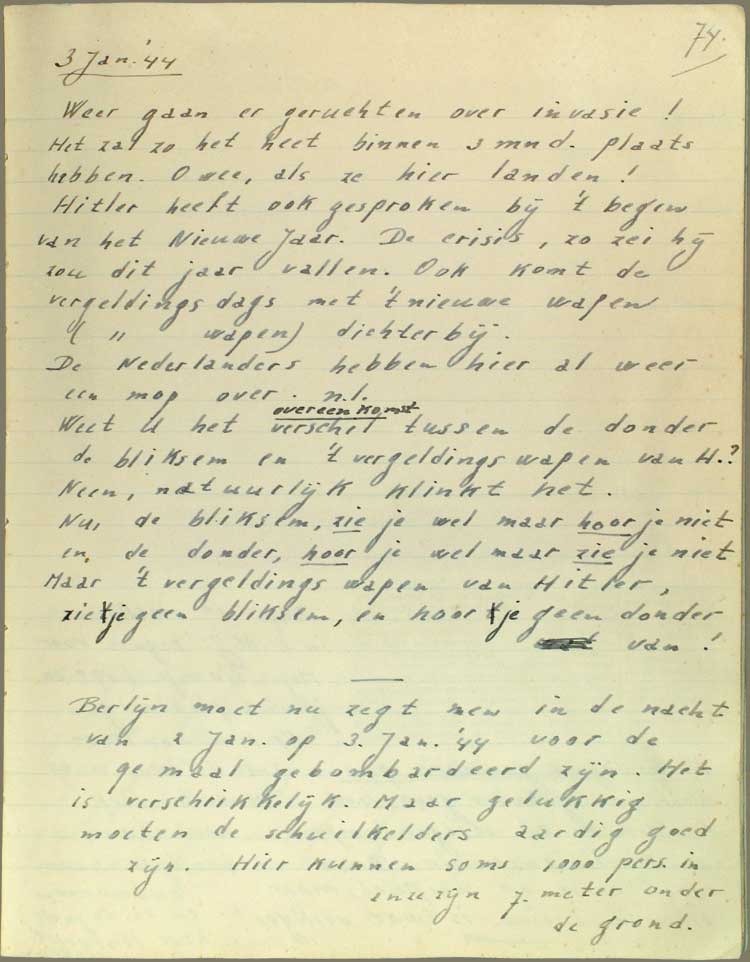 74.
3 Jan. '44
Weer gaan er geruchten over invasie!
Het zal zo het heet binnen 3 mnd. plaats
hebben. O wee, als ze hier landen!
Hitler heeft ook gesproken bij 't begin
van het Nieuwe Jaar. De crisis, zo zei hij
zou dit jaar vallen. Ook komt de
vergeldingsdags met 't nieuwe wapen
( " wapen) dichterbij.
De Nederlanders hebben hier al weer
een mop over. n.l.
overeenkomst
Weet U het verschil tussen de donder
de bliksem en 't vergeldingswapen van H.?
Neen, natuurlijk klinkt het.
Nu, de bliksem, zie je wel maar hoor je niet
en, de donder, hoor je wel maar zie je niet
Maar 't vergeldingswapen van Hitler,
zie je geen bliksem, en hoor je geen donder
van!
Berlijn moet nu zegt men in de nacht
van 2 Jan. op 3. Jan. '44 voor de
9e maal gebombardeerd zijn. Het
is verschrikkelijk. Maar gelukkig
moeten de schuilkelders aardig goed
zijn. Hier kunnen soms 1000 pers. in
zijn 7. meter onder
de grond.